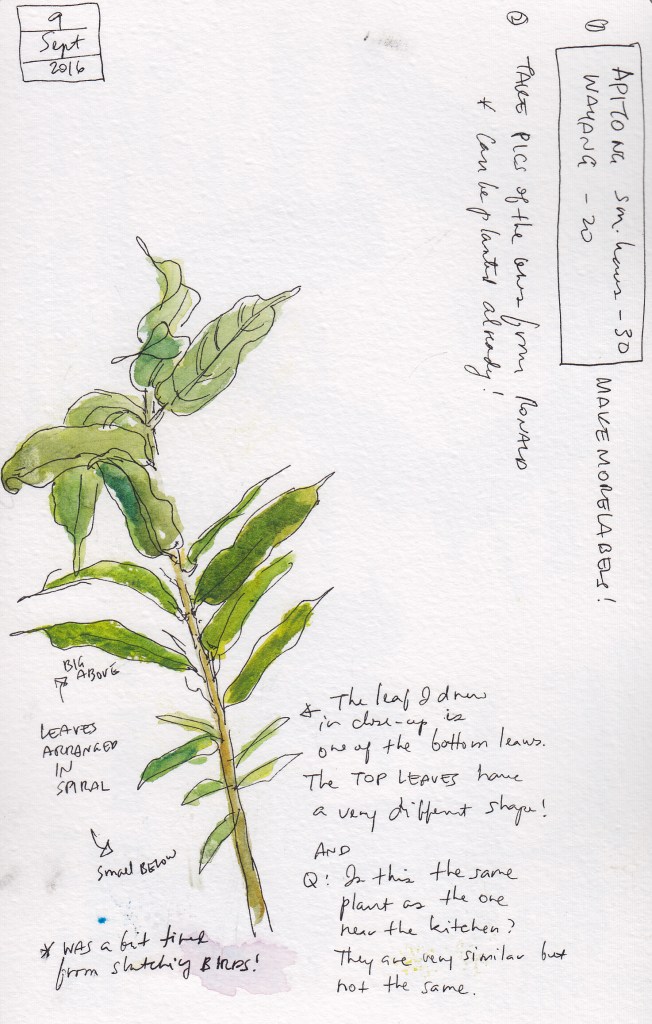 9
Sept
2016
①
APITONG sm. leaves - 30
WAYANG - 20
MAKE MORE LABELS!
② TAKE PICS of the ones from RONALD
* Can be planted already!
BIG
ABOVE
LEAVES
ARRANGED
IN
SPIRAL
Small BELOW
* The leaf I drew
in close-up is
one of the bottom leaves.
The TOP LEAVES have
a very different shape!
AND
Q: Is this the same
plant as the one
near the kitchen?
They are very similar but
not the same.
* WAS a bit tired
from sketching BIRDS!